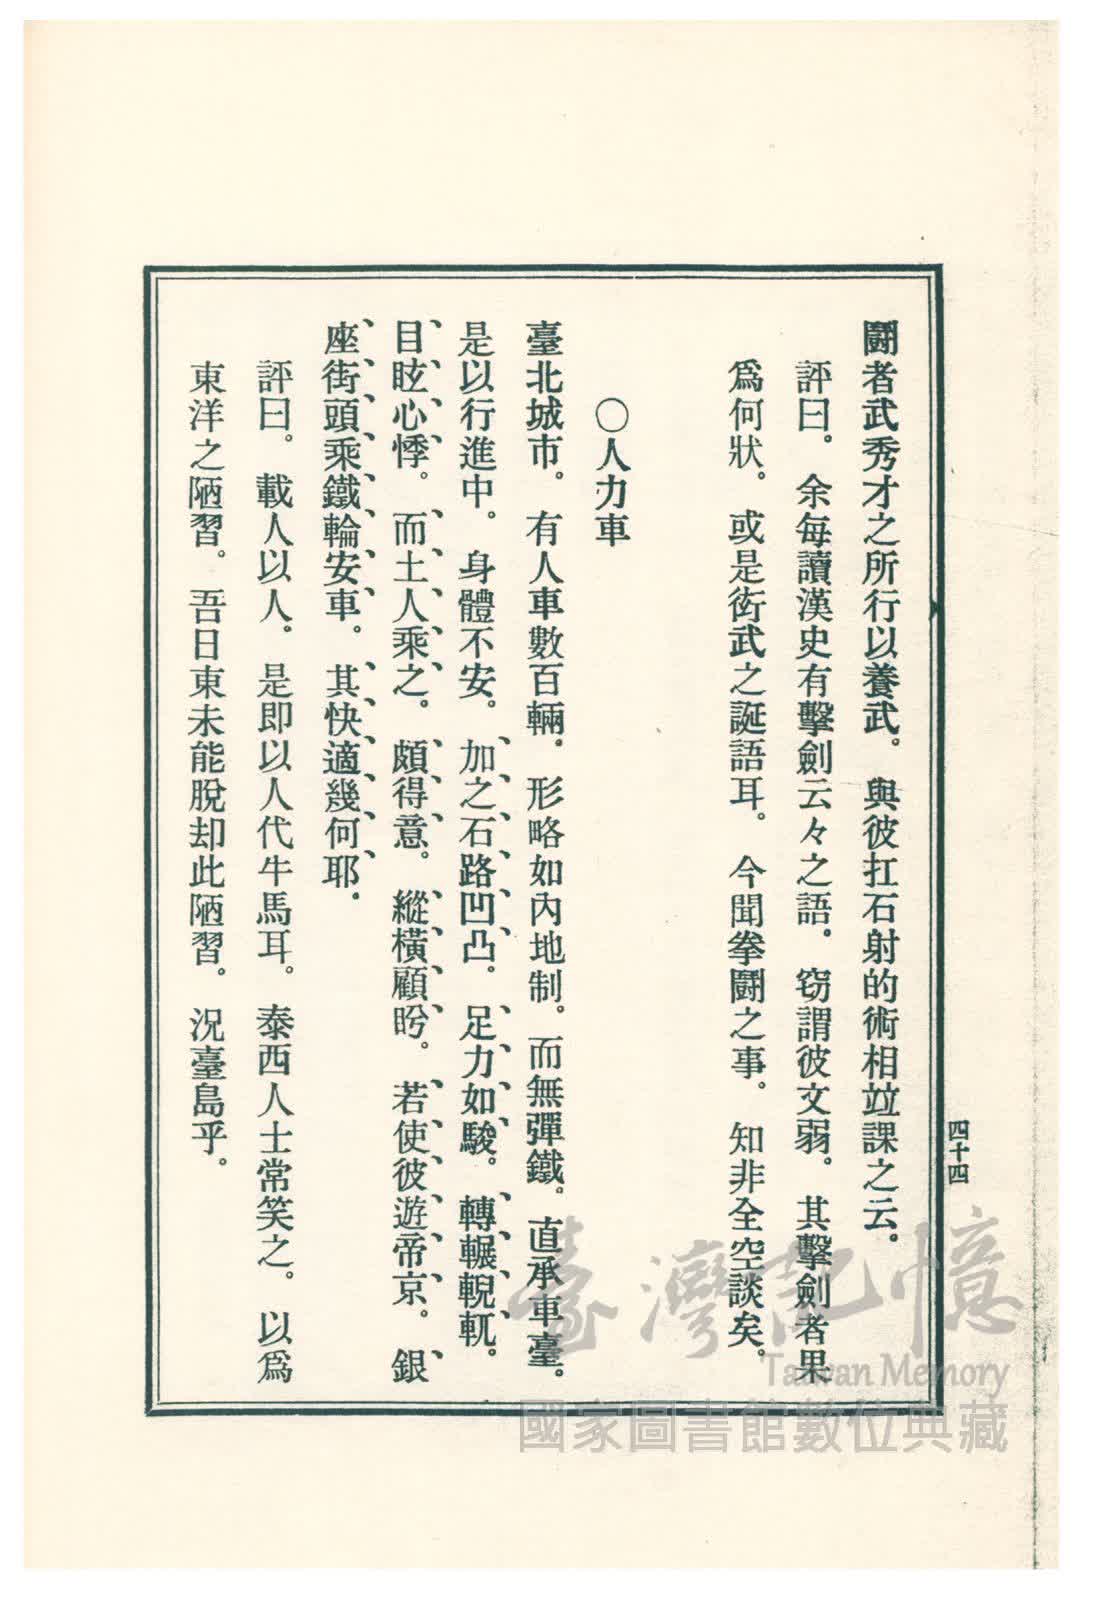 鬪者武秀才之所行以養武。與彼扛石射的術相竝課之云。
評曰。余每讀漢史有擊劍云々之語。窃謂彼文弱。其擊劍者果
爲何狀。或是衒武之誕語耳。今聞拳鬪之事。知非全空談矣。
〇人力車
臺北城市。有人車數百輛。形略如內地制。而無彈鐵。直承車臺。
是以行進中。身體不安。加之石路凹凸。足力如駿。轉輾輗軏。
目眩心悸。而土人乘之。頗得意。縱橫顧眄。若使彼遊帝京。銀
座街頭乘鐵輪安車。其快適幾何耶。
評曰。載人以人。是即以人代牛馬耳。泰西人士常笑之。以爲
東洋之陋習。吾日東未能脫却此陋習。況臺島乎。
四十四
臺灣記憶
Taiwan Memory
國家圖書館數位典藏